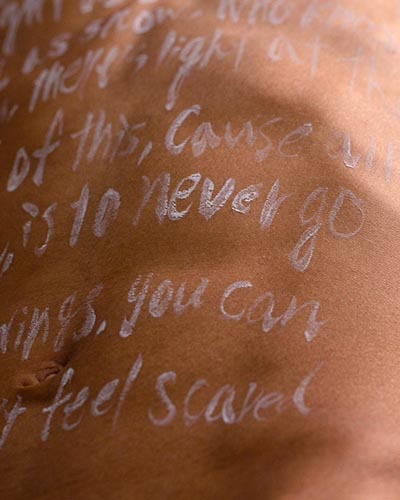 as snow. Who
there's light at th
of this, Cause all
is to never go
wings, you can
feel scared